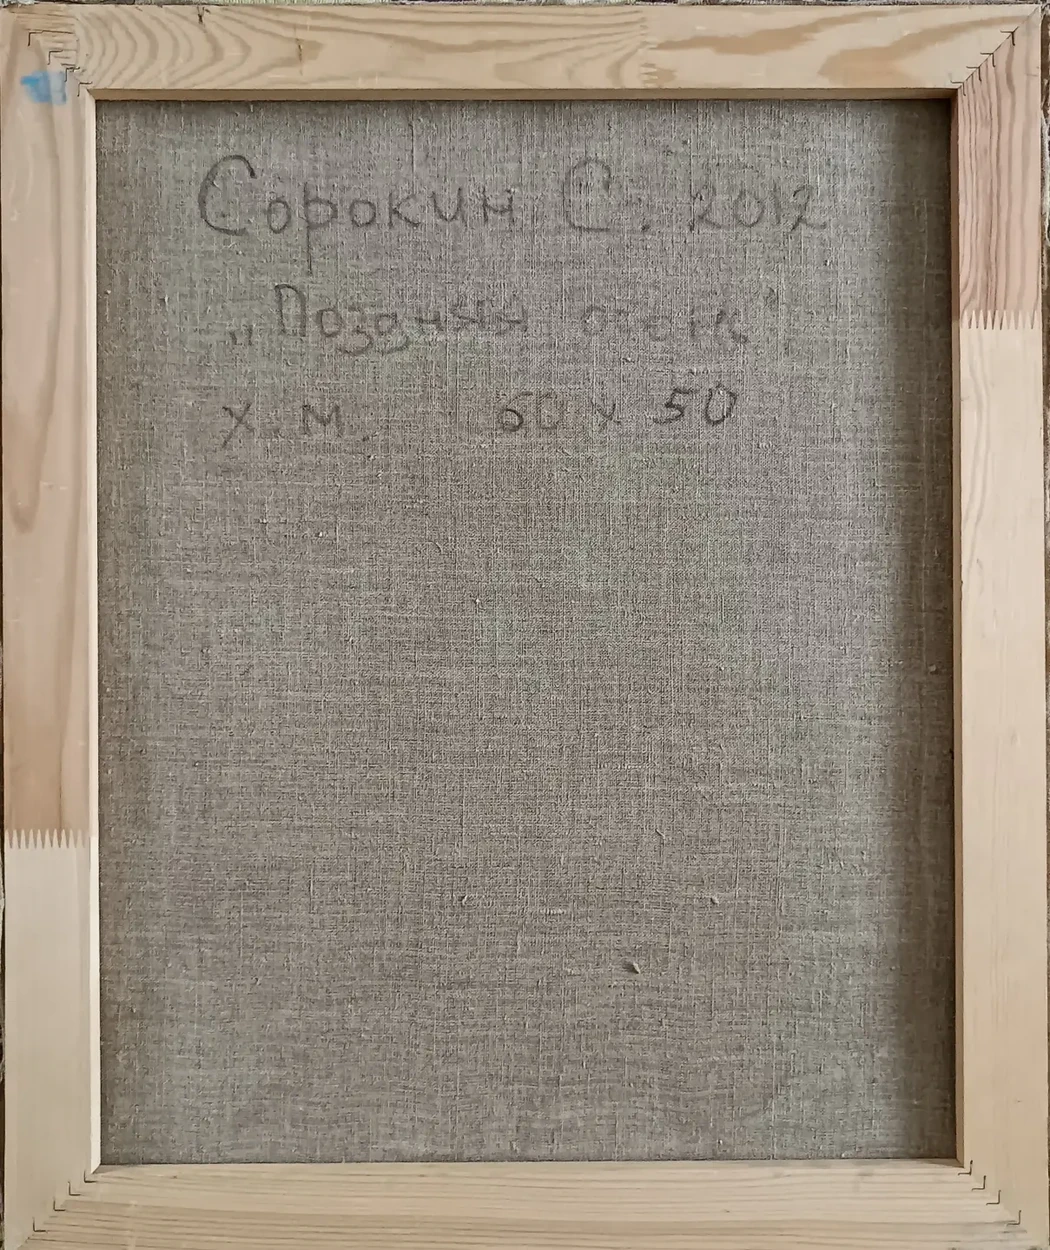 Сорокин С. 2012
„Поздняя осень"
х. м. 60 х 50